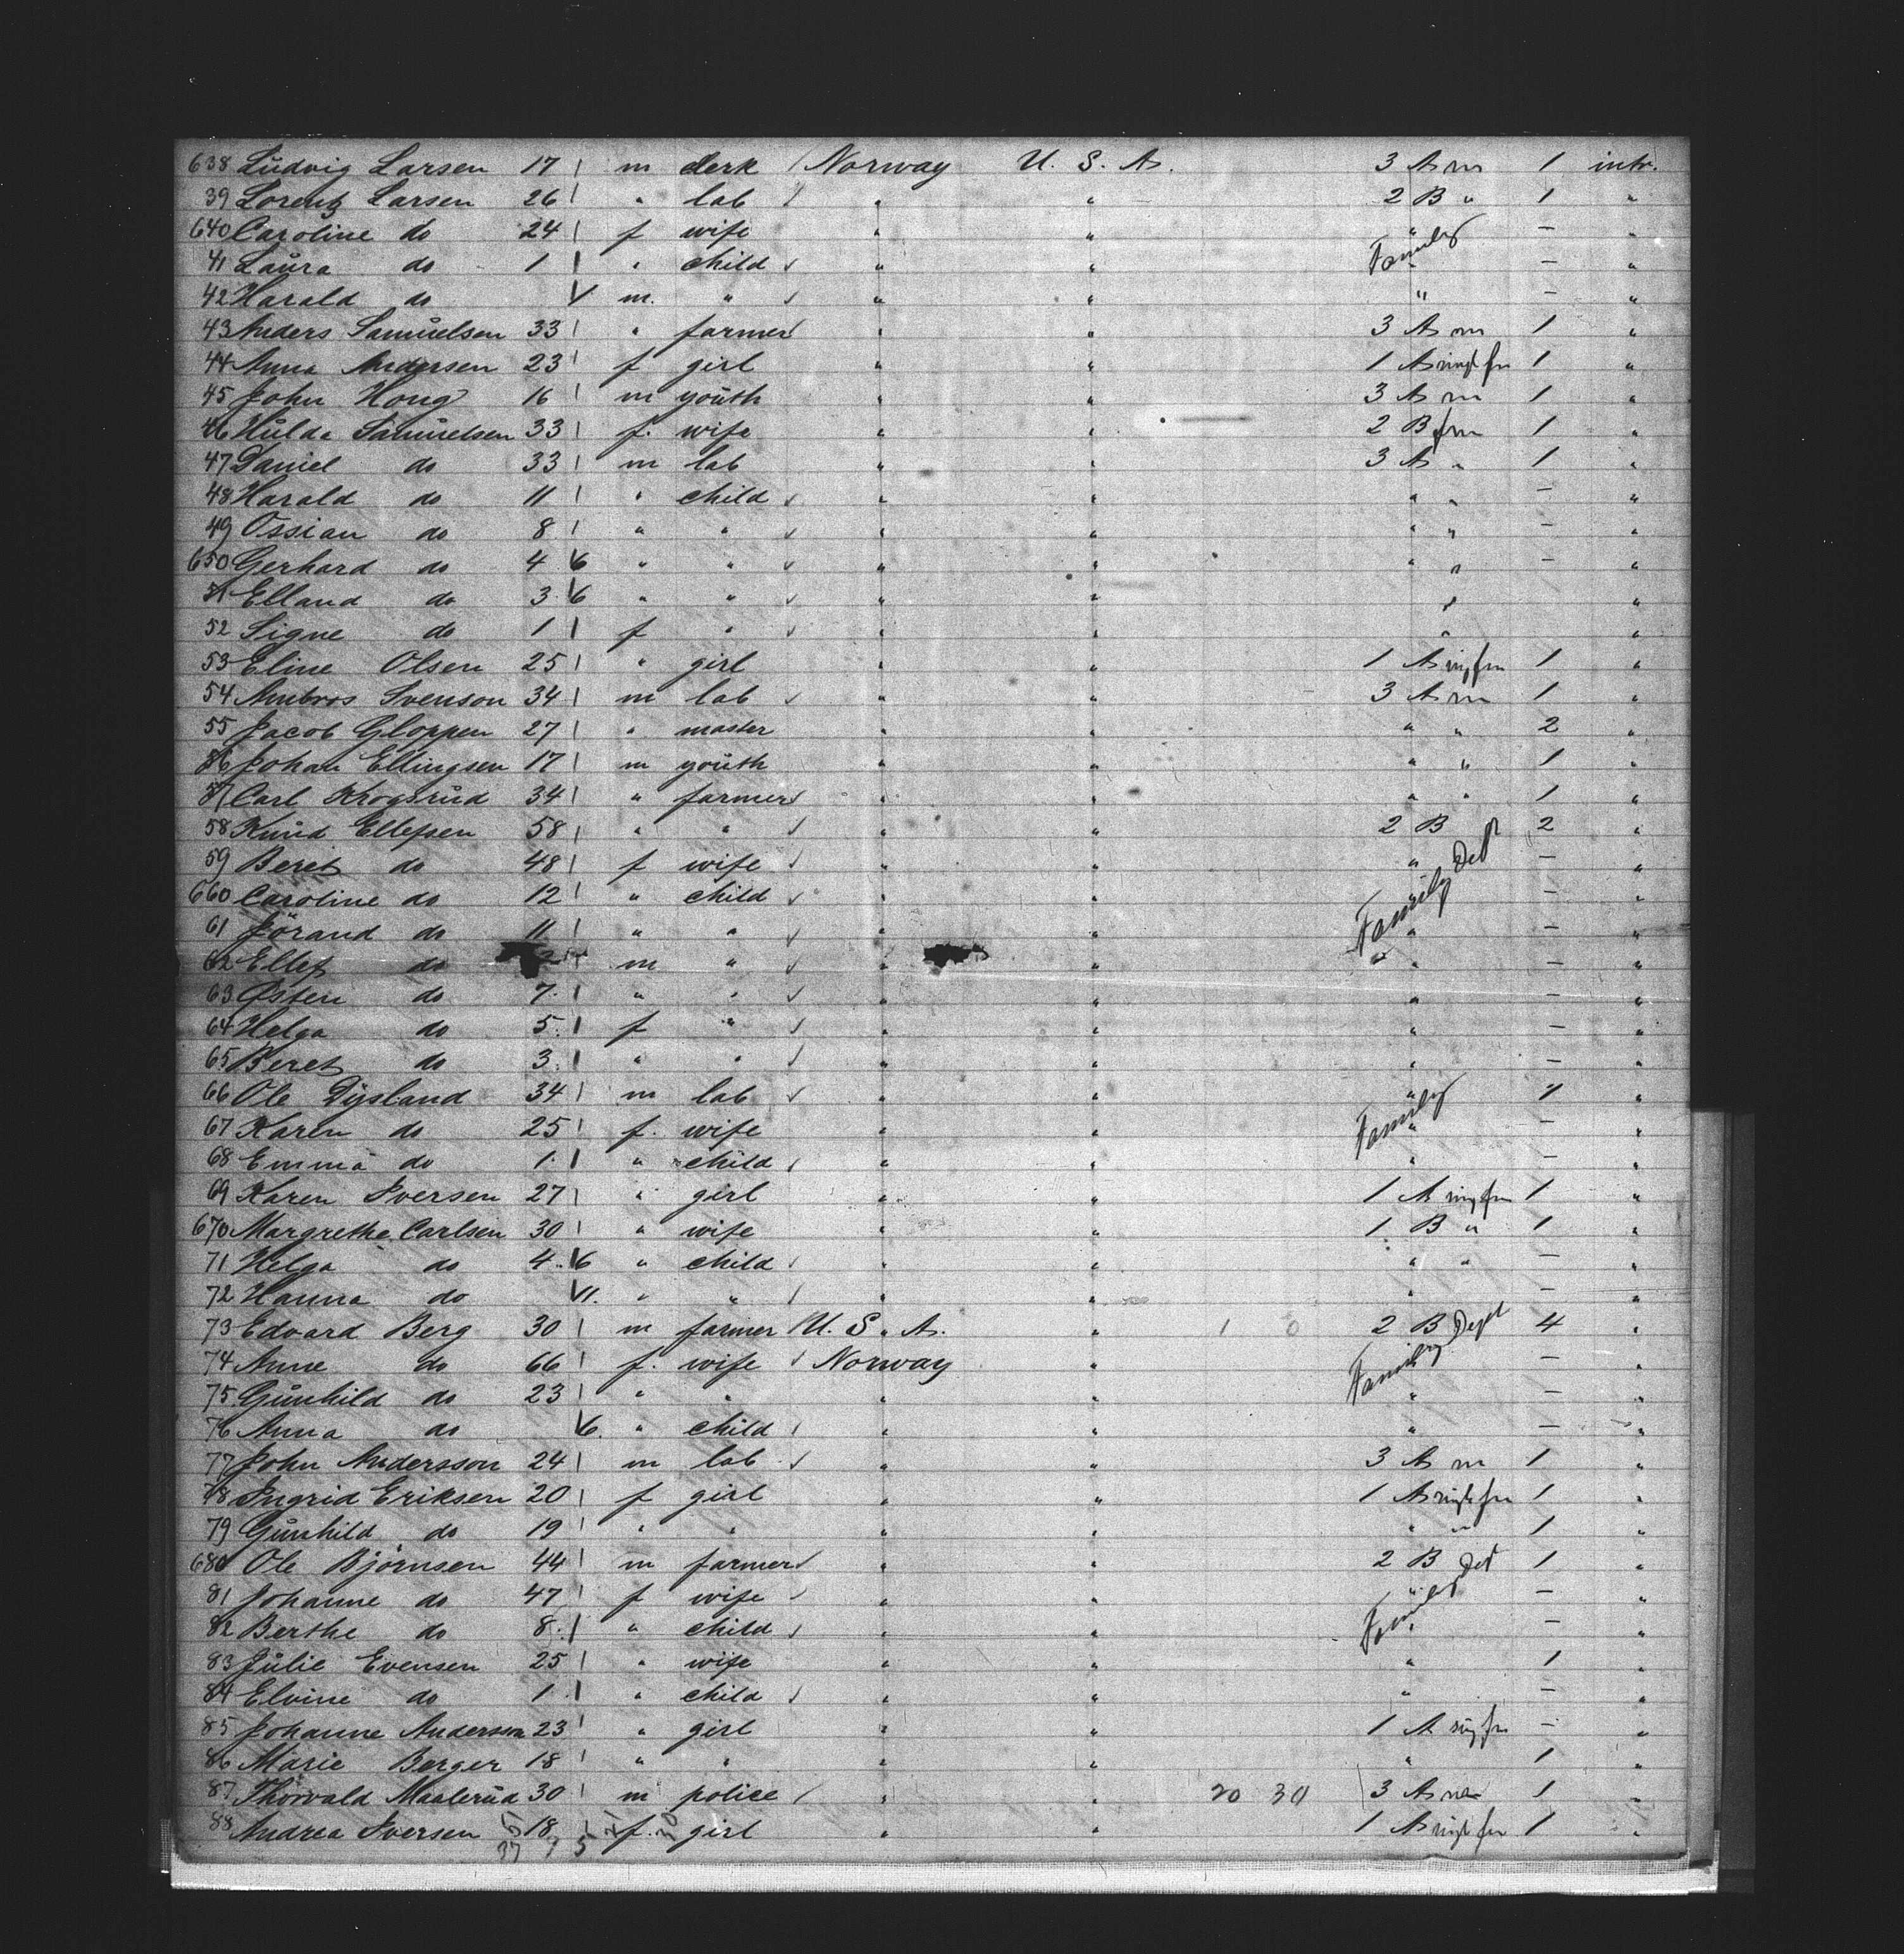 638 Ludvig Larsen 17 m clerk Norway U. S. A. 3 A m 1 intr.
39 Lorentz Larsen 26 " lab " " 2 B " 1 "
640 Caroline do 24 f wife " " " — "
41 Laura do 1 " child " " Family " — "
42 Harald do m. " " " " — "
43 Anders Samuelsen 33 " farmer " " 3 A m 1 "
44 Anna Andersen 23 f girl " " 1 A 1 "
45 John Houg 16 m youth " " 3 A m 1 "
46 Hulda Samuelsen 33 f. wife " " 2 B fm 1 "
47 Daniel do 33 m lab " " 3 A " 1 "
48 Harald do 11 " child " " " " — "
49 Ossian do 8 " " " " " " — "
650 Gerhard do 4 6 " " " " " " — "
51 Elland do 3 6 " " " " " "
52 Signe do 1 f " " " " "
53 Eline Olsen 25 " girl " " 1 A 1 "
54 Ambros Svenson 34 m lab " " 3 A m 1 "
55 Jacob Gloppen 27 " master " " " " 2 "
56 Johan Ellingsen 17 m youth " " " " 1 "
57 Carl Krogsrud 34 " farmer " " " " 1 "
58 Knud Ellefsen 58 " " " " 2 B 2 "
59 Beret do 48 f wife " " " Dept — "
660 Caroline do 12 " child " " Family — "
61 Jörand do 11 " " " " " — "
62 Ellef do m " " " " — "
63 Østen do 7 " " " " " — "
64 Helga do 5 f " " " " — "
65 Beret do 3 " " " " " — "
66 Ole Dysland 34 m lab " " " 1 "
67 Karen do 25 f. wife " " Family " — "
68 Emma do 1 " child " " " — "
69 Karen Iversen 27 " girl " " 1 A 1 "
670 Margrethe Carlsen 30 " wife " " 1 B " 1 "
71 Helga do 4 6 " child " " " " — "
72 Hanna do 11. " " " " " — "
73 Edvard Berg 30 m farmer U. S. A. " 1 0 2 B Dept 4 "
74 Anne do 66 f. wife Norway " Family — "
75 Gunhild do 23 " " " " " — "
76 Anna do 6. " child " " " — "
77 John Andersson 24 m lab " " 3 A m 1 "
78 Ingrid Eriksen 20 f girl " " 1 A 1 "
79 Gunhild do 19 " " " " " " 1 "
680 Ole Bjørnsen 44 m farmer " " 2 B Det 1 "
81 Johanne do 47 f wife " " Family " — "
82 Berthe do 8 " child " " " — "
83 Julie Evensen 25 " wife " " " 1 "
84 Elvine do 1 " child " " " — "
85 Johanne Anderssen 23 " girl " " 1 A — "
86 Marie Berger 18 " " " " " 1 "
87 Thorvald Maalerud 30 m police " " 20 30 3 A 1 "
88 Andrea Iversen 18 f. girl " " 1 A 1 "